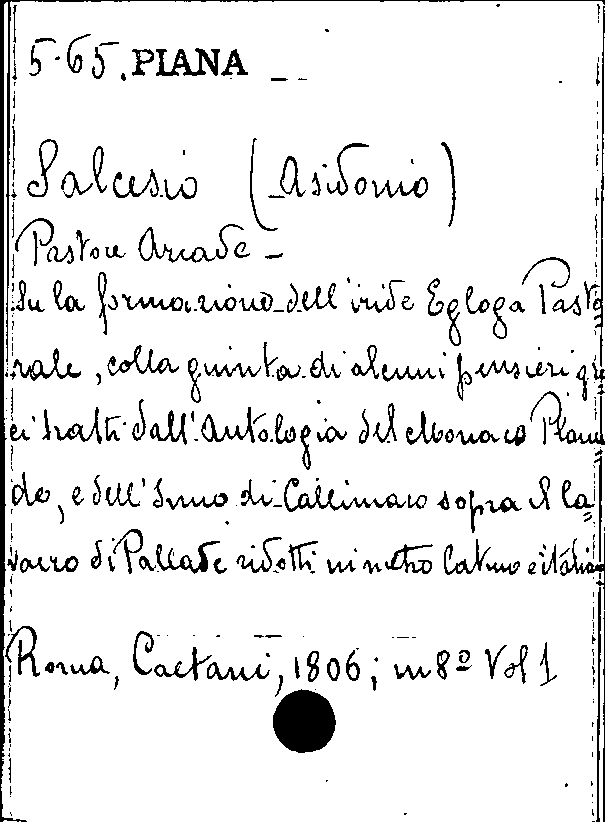 5-65. PIANA
Salcesio (Asidonio)
Pastore Arcade -
Su la formazione dell'iride Egloga Pasto=
rale, colla giunta di alcuni pensieri gre=
ci tratti dall'Antologia del Monaco Planu=
de, e dell'Inno di Callimaco sopra il la=
vacro di Pallade ridotti in metro latino e italiano
Roma, Caetani, 1806; in 8º Vol 1